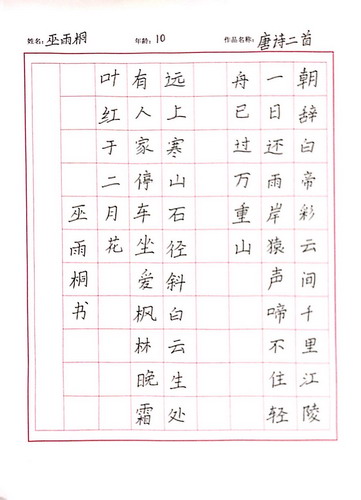 姓名: 巫雨桐 年龄: 10 作品名称: 唐诗二首
朝辞白帝彩云间千里江陵
一日还雨岸猿声啼不住轻
舟已过万重山
远上寒山石径斜白云生处
有人家停车坐爱枫林晚霜
叶红于二月花
巫雨桐书